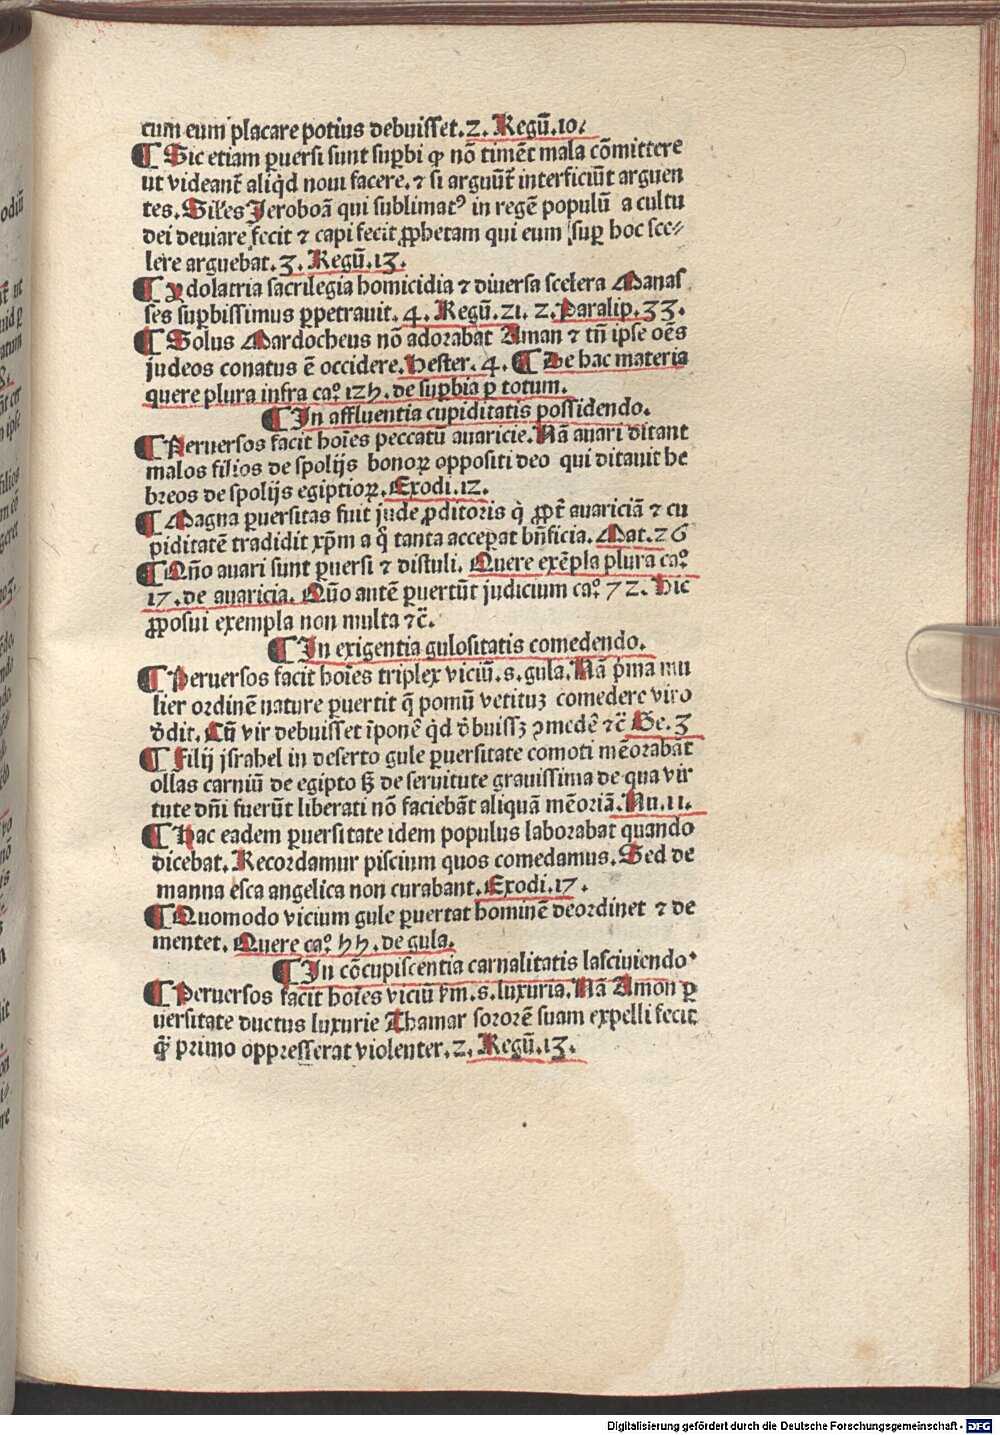 cum eum placare potius debuisset. 2. Regū. 10.
¶ Sic etiam ꝑuersi sunt suꝑbi ꝙ nō timēt mala cōmittere
ut videant̄ aliq̇d noui facere. ⁊ si arguūt̄ interficiūt arguen
tes. Siłes Jeroboā qui sublimatꝰ in regē populū a cultu
dei deuiare fecit ⁊ capi fecit ꝓphetam qui eum suꝑ hoc sce⸗
lere arguebat. 3. Regū. 13.
¶ Ydolatria sacrilegia homicidia ⁊ diuersa scelera Manas
ses suꝑbissimus ꝑpetrauit. 4. Regū. 21. 2. Paralip. 33.
¶ Solus Mardocheus nō adorabat Aman ⁊ tñ ipse oēs
judeos conatus ē occidere. Hester. 4. ¶ De hac materia
quere plura infra ca.º 124. de suꝑbia ꝑ totum.
¶ In affluentia cupiditatis possidendo.
¶ Peruersos facit hoīes peccatū auaricie. Nā auari ditant
malos filios de spolijs bonoꝝ oppositi deo qui ditauit he
breos de spolijs egiptioꝝ. Exodi. 12.
¶ Magna ꝑuersitas fuit jude ꝓditoris q̇ ꝓpt̄ auariciā ⁊ cu
piditatē tradidit xp̄m a q̊ tanta acceperat bñficia. Mat. 26
¶ Qūo auari sunt ꝑuersi ⁊ distuli. Quere exēpla plura ca.º
17. de auaricia. Qūo autē ꝑuertūt judicium ca.º 72. Hic
ꝓposui exempla non multa ⁊c̄.
¶ In exigentia gulositatis comedendo.
¶ Peruersos facit hoīes triplex viciū. s. gula. Nā p̄ma mu
lier ordinē nature ꝑuertit q̄ pomū vetituꝫ comedere viro
dēdit. Cū vir debuisset īponē q̇d dēbuissꝫ ꝯmedē ⁊c̄ Ge. 3
¶ Filij jsrahel in deserto gule ꝑuersitate comoti mēorabāt
ollas carniū de egipto sꝫ de seruitute grauissima de qua vir
tute dñi fuerūt liberati nō faciebāt aliquā mēoriā. Nu. 11.
¶ Hac eadem ꝑuersitate idem populus laborabat quando
dicebat. Recordamur piscium quos comedamus. Sed de
manna esca angelica non curabant. Exodi. 17.
¶ Quomodo vicium gule ꝑuertat hominē deordinet ⁊ de
mentet. Quere ca.º 44. de gula.
¶ In cōcupiscentia carnalitatis lasciuiendo.
¶ Peruersos facit hoīes viciū t̄m. s. luxuria. Nā Amon ꝑ
uersitate ductus luxurie Thamar sororē suam expelli fecit
q̄ꝫ primo oppresserat violenter. 2. Regū. 13.
Digitalisierung gefördert durch die Deutsche Forschungsgemeinschaft - DFG